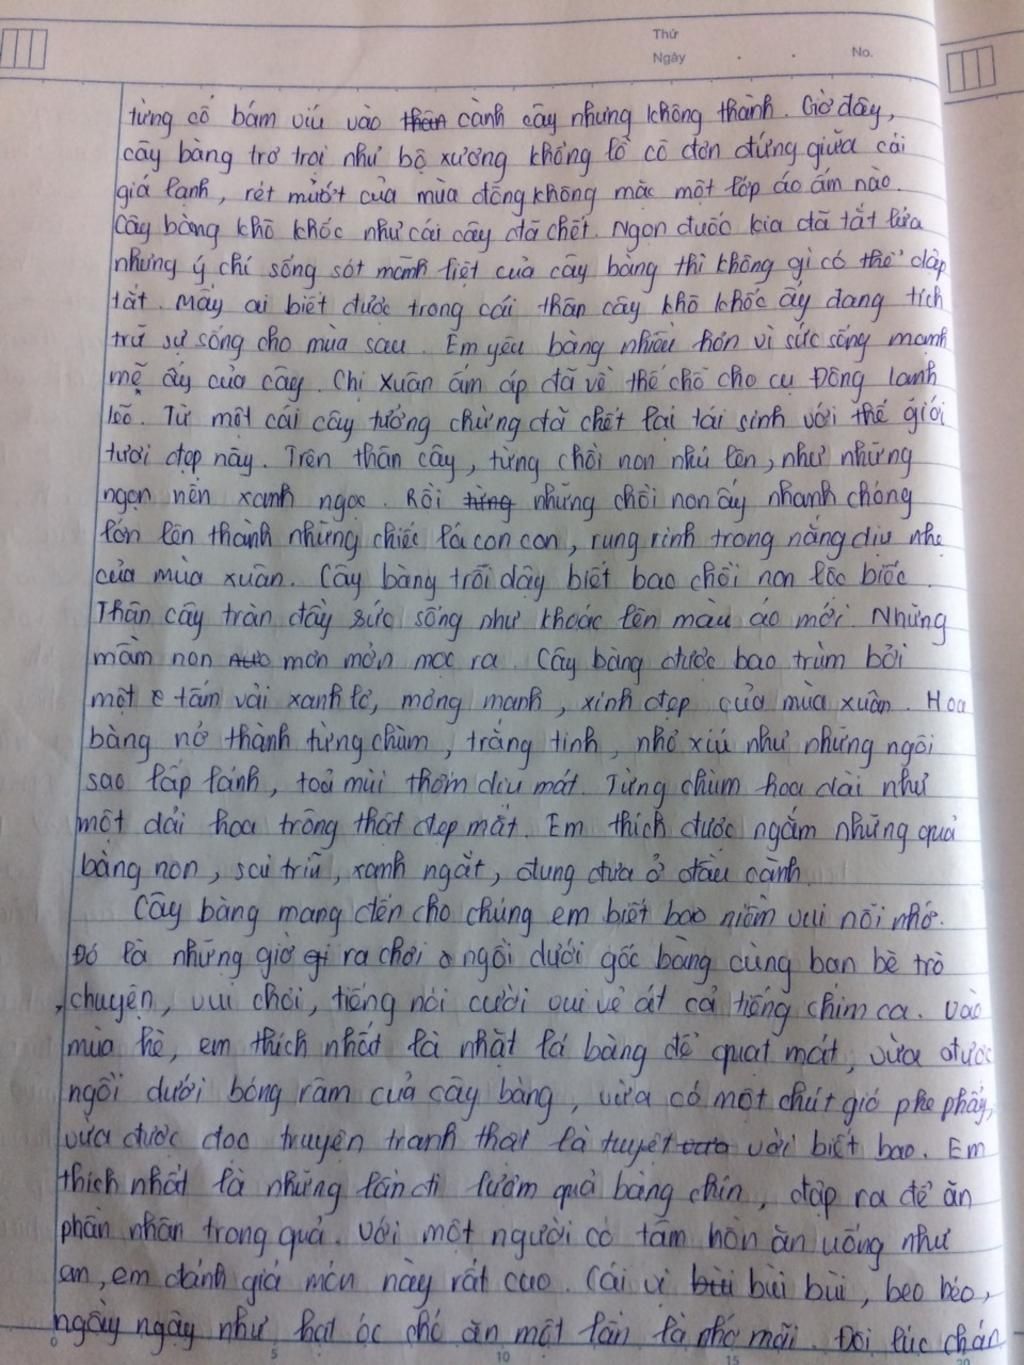 Thứ
Ngày
No.
từng cố bám víu vào thân cành cây nhưng không thành. Giờ đây,
cây bàng trơ trọi như bộ xương khổng lồ cô đơn đứng giữa cái
giá lạnh, rét mướt của mùa đông không mặc một lớp áo ấm nào.
Cây bàng khô khốc như cái cây đã chết. Ngọn đuốc kia đã tắt lửa
nhưng ý chí sống sót mãnh liệt của cây bàng thì không gì có thể dập
tắt. Mấy ai biết được trong cái thân cây khô khốc ấy đang tích
trữ sự sống cho mùa sau. Em yêu bàng nhiều hơn vì sức sống mạnh
mẽ ấy của cây. Chị Xuân ấm áp đã về thế chỗ cho cụ Đông lạnh
lẽo. Từ một cái cây tưởng chừng đã chết lại tái sinh với thế giới
tươi đẹp này. Trên thân cây, từng chồi non nhú lên, như những
ngọn nến xanh ngọc. Rồi từng những chồi non ấy nhanh chóng
lớn lên thành những chiếc lá con con, rung rinh trong nắng dịu nhẹ
của mùa xuân. Cây bàng trỗi dậy biết bao chồi non lộc biếc.
Thân cây tràn đầy sức sống như khoác lên màu áo mới. Những
mầm non mơn mởn mọc ra. Cây bàng được bao trùm bởi
một tấm vải xanh lơ, mỏng manh, xinh đẹp của mùa xuân. Hoa
bàng nở thành từng chùm, trắng tinh, nhỏ xíu như những ngôi
sao lấp lánh, toả mùi thơm dịu mát. Từng chùm hoa dài như
một dải hoa trông thật đẹp mắt. Em thích được ngắm những quả
bàng non, sai trĩu, xanh ngắt, đung đưa ở đầu cành.
Cây bàng mang đến cho chúng em biết bao niềm vui nỗi nhớ.
Đó là những giờ gi ra chơi ngồi dưới gốc bàng cùng bạn bè trò
chuyện, vui chơi, tiếng nói cười vui vẻ át cả tiếng chim ca. Vào
mùa hè, em thích nhất là nhặt lá bàng để quạt mát, vừa được
ngồi dưới bóng râm của cây bàng, vừa có một chút gió phe phẩy,
vừa được đọc truyện tranh thật là tuyệt vời biết bao. Em
thích nhất là những lần đi lượm quả bàng chín, đập ra để ăn
phần nhân trong quả. Với một người có tâm hồn ăn uống như
em, em đánh giá món này rất cao. Cái vị bùi bùi bùi, beo béo,
ngầy ngậy như hạt óc chó ăn một lần là nhớ mãi. Đôi lúc chán
5
10
15
20